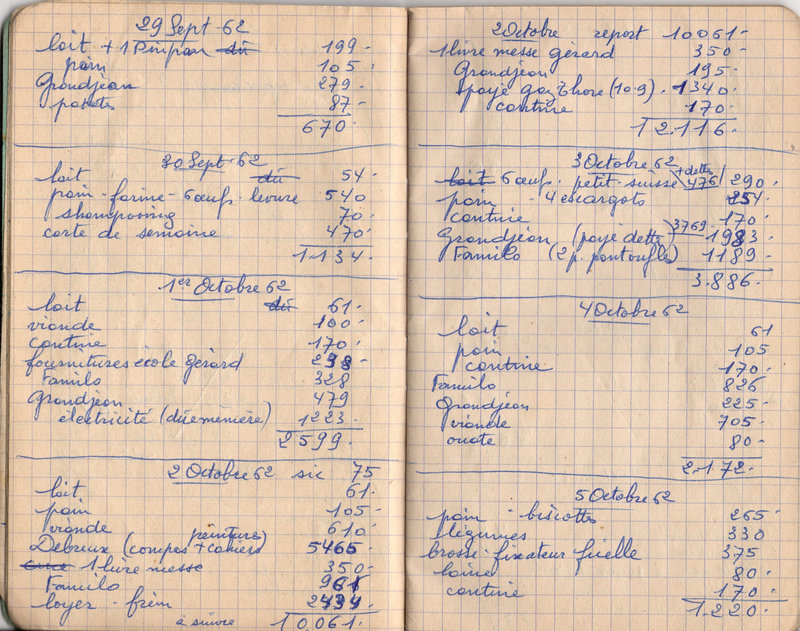 29 Sept 62
lait + 1 Pimpam dû 199-
pain 105.
Grandjean 279-
patates 87-
670.
30 Sept-62
lait dû 54-
pain-farine-6 œufs levure 540
shampooing 70.
carte de semaine 470-
1134.
1er Octobre 62
lait dû 61-
viande 100-
cantine 170.
fournitures école gérard 298-
Familo 328
Grandjean 479
électricité (dû 1223-
2599.
2 Octobre 62 sic 75
lait 61.
pain 105-
viande 610
peinture)
Debreux (compas + cahiers 5465.
1 livre messe 350-
Familo 961
loyer - frèm 2434
à suivre 10061.
2 Octobre report 10061-
1 livre messe gerard 350-
Grandjean 195-
payé gaz Thore (10.9). 1340.
cantine 170.
12.116.
3 Octobre 62
+ dette
lait 6 œufs. petit-suisse 476 290-
pain - 4 escargots 254-
cantine 170-
Grandjean (payé dette) 3769- 1983-
Familo (2 p. pantoufles) 1189-
3.886-
4 Octobre 62
lait 61
pain 105
cantine 170-
Familo 826
Grandjean 225-
viande 705-
ouate 80-
2.172-
5 Octobre 62
pain - biscottes 265-
légumes 330
brosse-fixateur ficelle 375
laine 80-
cantine 170-
1.220-